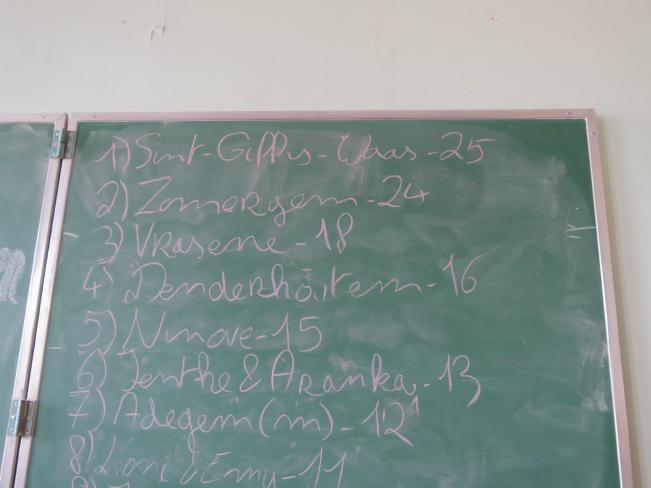 1) Sint-Gillis-Waas-25
2) Zomergem-24
3) Vrasene-18
4) Denderhoutem-16
5) Ninove-15
6) Jenthe & Aranka-13
7) Adegem (m)-12
8) Loni & Emmy-11